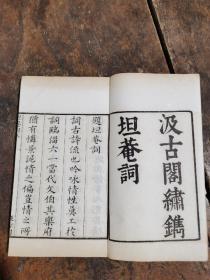 汲古閣繡鐫
坦菴詞
題坦菴詞
詞古詩流也吟咏情性莫工於
詞臨淄六一當代文伯其樂府
猶有憐景泥情之偏豈情之所